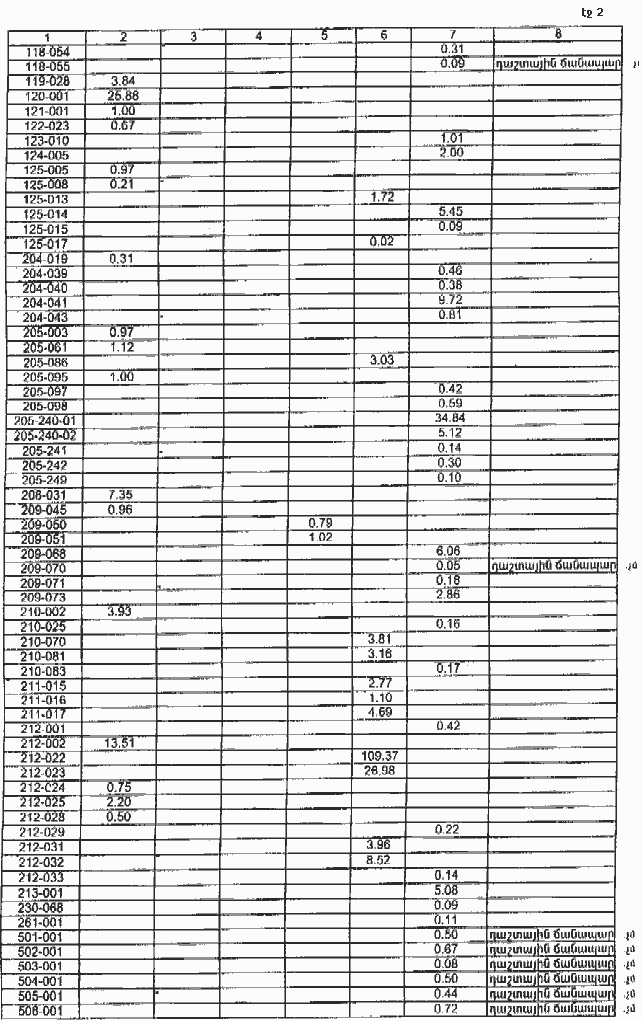 էջ 2
1 2 3 4 5 6 7 8
118-054 0.31
118-055 0.09 դաշտային ճանապար
119-028 3.84
120-001 26.88
121-001 1.00
122-023 0.67
123-010 1.01
124-005 2.00
125-005 0.97
125-008 0.21
125-013 1.72
125-014 5.45
125-015 0.09
125-017 0.02
204-019 0.31
204-039 0.46
204-040 0.38
204-041 9.72
204-043 0.81
205-003 0.97
205-061 1.12
205-086 3.03
205-095 1.00
205-097 0.42
205-098 0.59
205-240-01 34.84
205-240-02 5.12
205-241 0.14
205-242 0.30
205-249 0.10
208-031 7.35
209-045 0.96
209-050 0.79
209-051 1.02
209-068 6.06
209-070 0.05 դաշտային ճանապար
209-071 0.18
209-073 2.86
210-002 3.93
210-025 0.16
210-070 3.81
210-081 3.16
210-083 0.17
211-015 2.77
211-016 1.10
211-017 4.69
212-001 0.42
212-002 13.51
212-022 109.37
212-023 26.98
212-024 0.75
212-025 2.20
212-028 0.50
212-029 0.22
212-031 3.96
212-032 8.52
212-033 0.14
213-001 5.08
230-068 0.09
261-001 0.11
501-001 0.50 դաշտային ճանապար
502-001 0.67 դաշտային ճանապար
503-001 0.08 դաշտային ճանապար
504-001 0.50 դաշտային ճանապար
505-001 0.44 դաշտային ճանապար
506-001 0.72 դաշտային ճանապար